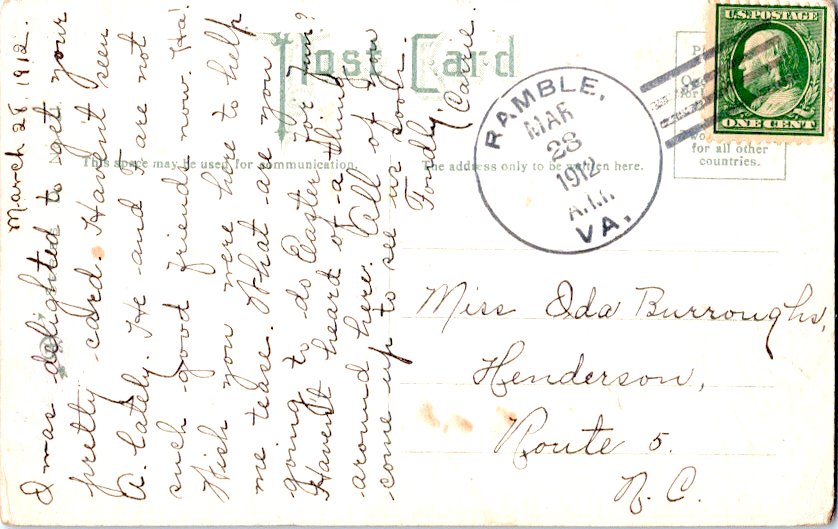 March 28, 1912.
I was delighted to get your
pretty card. Haven't seen
A. lately. He and I are not
such good friends now. Ha!
Wish you were here to help
me tease. What are you
going to do Easter for fun?
Haven't heard of a thing
around here. All of you
come up to see us soon.
Fondly, Carrie.
Post Card
This space may be used for communication.
The address only to be written here.
RAMBLE,
MAR
28
1912
A.M.
VA.
U.S. POSTAGE
ONE CENT
for all other
countries.
Miss Ida Burroughs,
Henderson,
Route 5.
N. C.